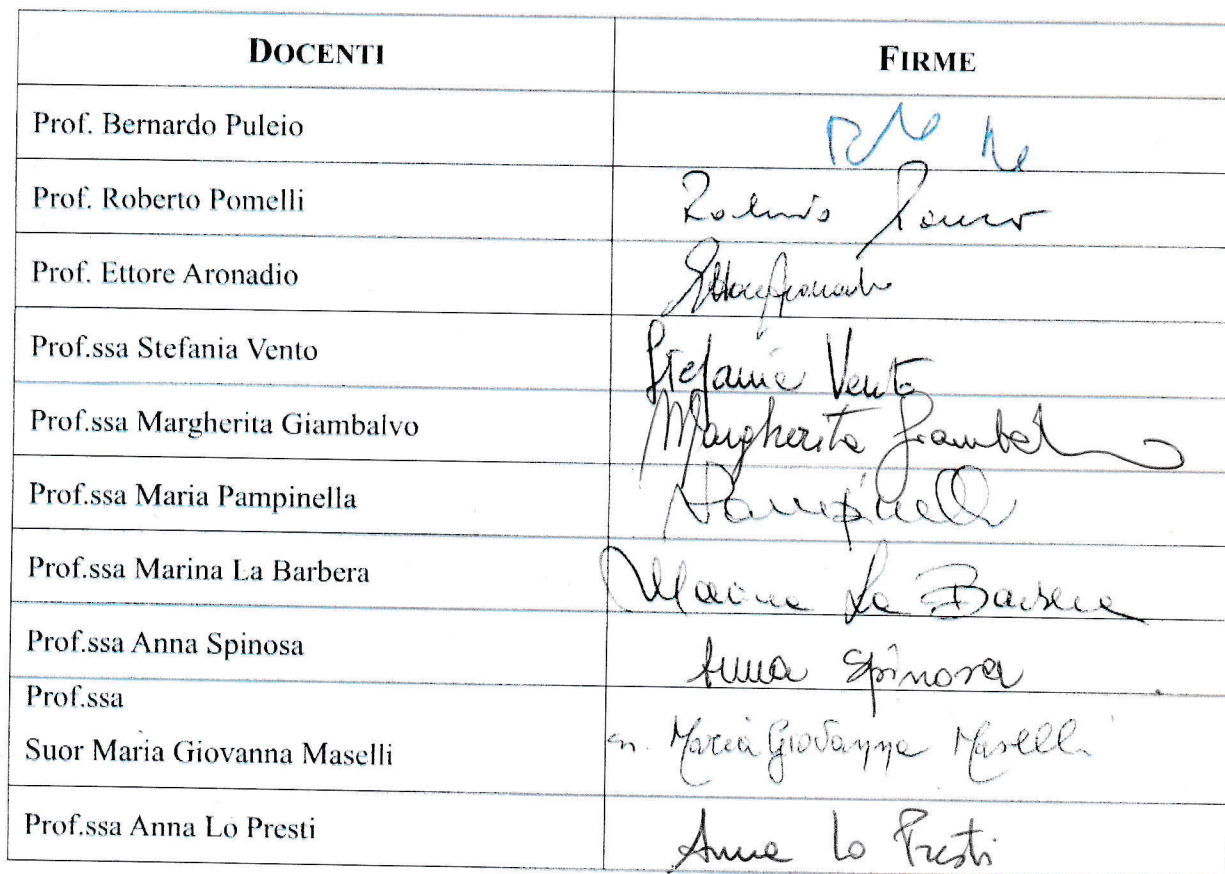 DOCENTI FIRME
Prof. Bernardo Puleio
Prof. Roberto Pomelli
Prof. Ettore Aronadio
Prof.ssa Stefania Vento Stefania Vento
Prof.ssa Margherita Giambalvo Margherita
Prof.ssa Maria Pampinella
Prof.ssa Marina La Barbera Marina La Barbera
Prof.ssa Anna Spinosa Anna Spinosa
Prof.ssa
Suor Maria Giovanna Maselli Maria Giovanna Maselli
Prof.ssa Anna Lo Presti Anna Lo Presti